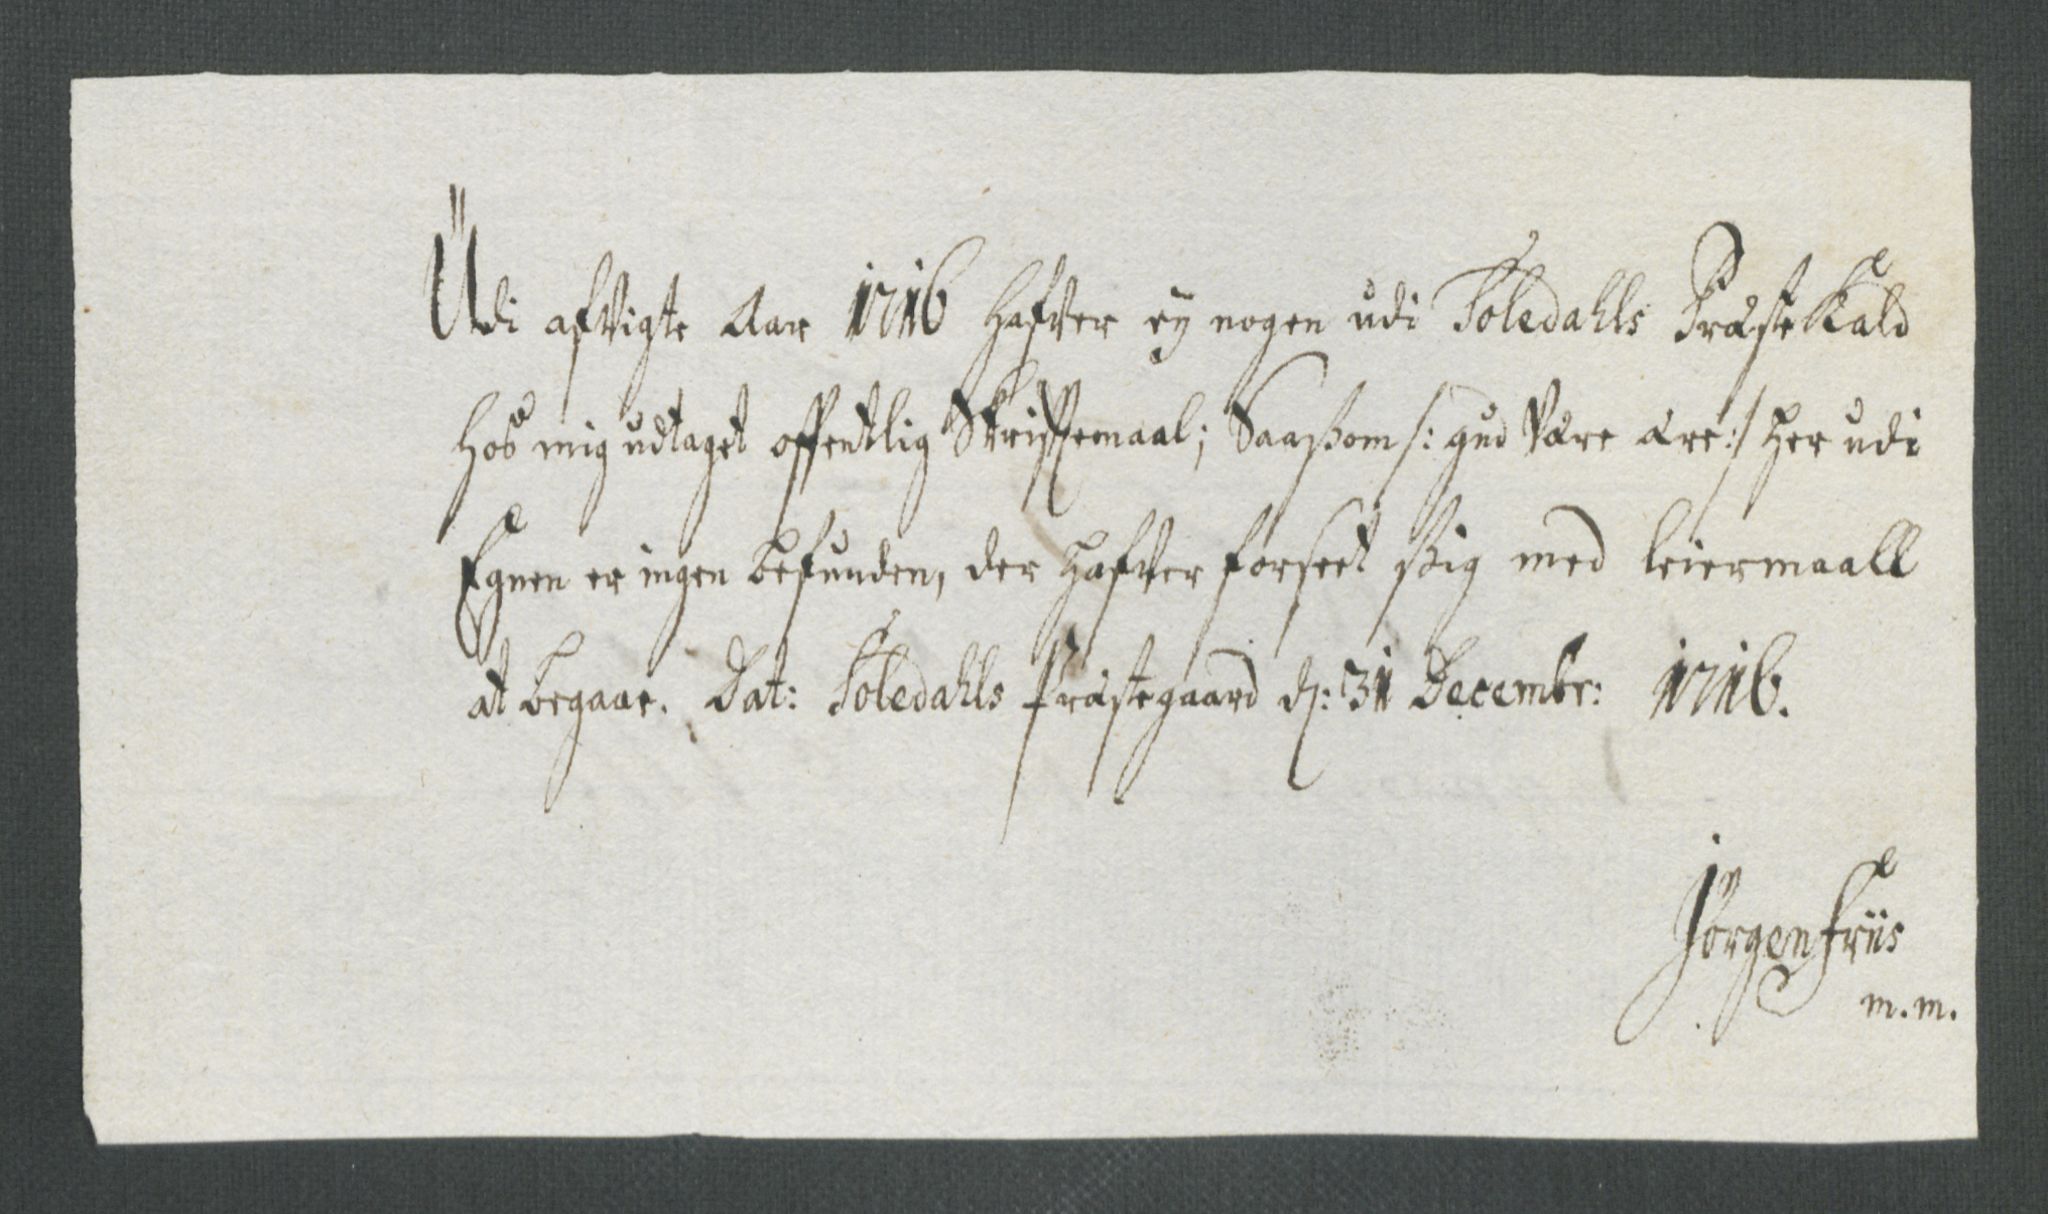 Udi afvigte Aar 1716 hafver ey nogen udi Foledahls Præste Kald
hos mig udtaget offentlig Skriftemaal; Saassom /: gud være ære :/ her udi
Egnen er ingen befunden, der hafver forseet ssig med leiermaall
at begaae. Dat: Foledahls Præstegaard d: 31 Decembr: 1716.
Jörgen Friis
m. m.